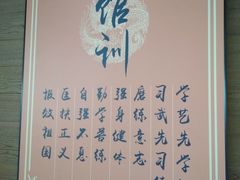 馆训
学艺先学
习武先习
磨练意志
强身健体
勤学苦练
自强不息
匡扶正义
报效祖国